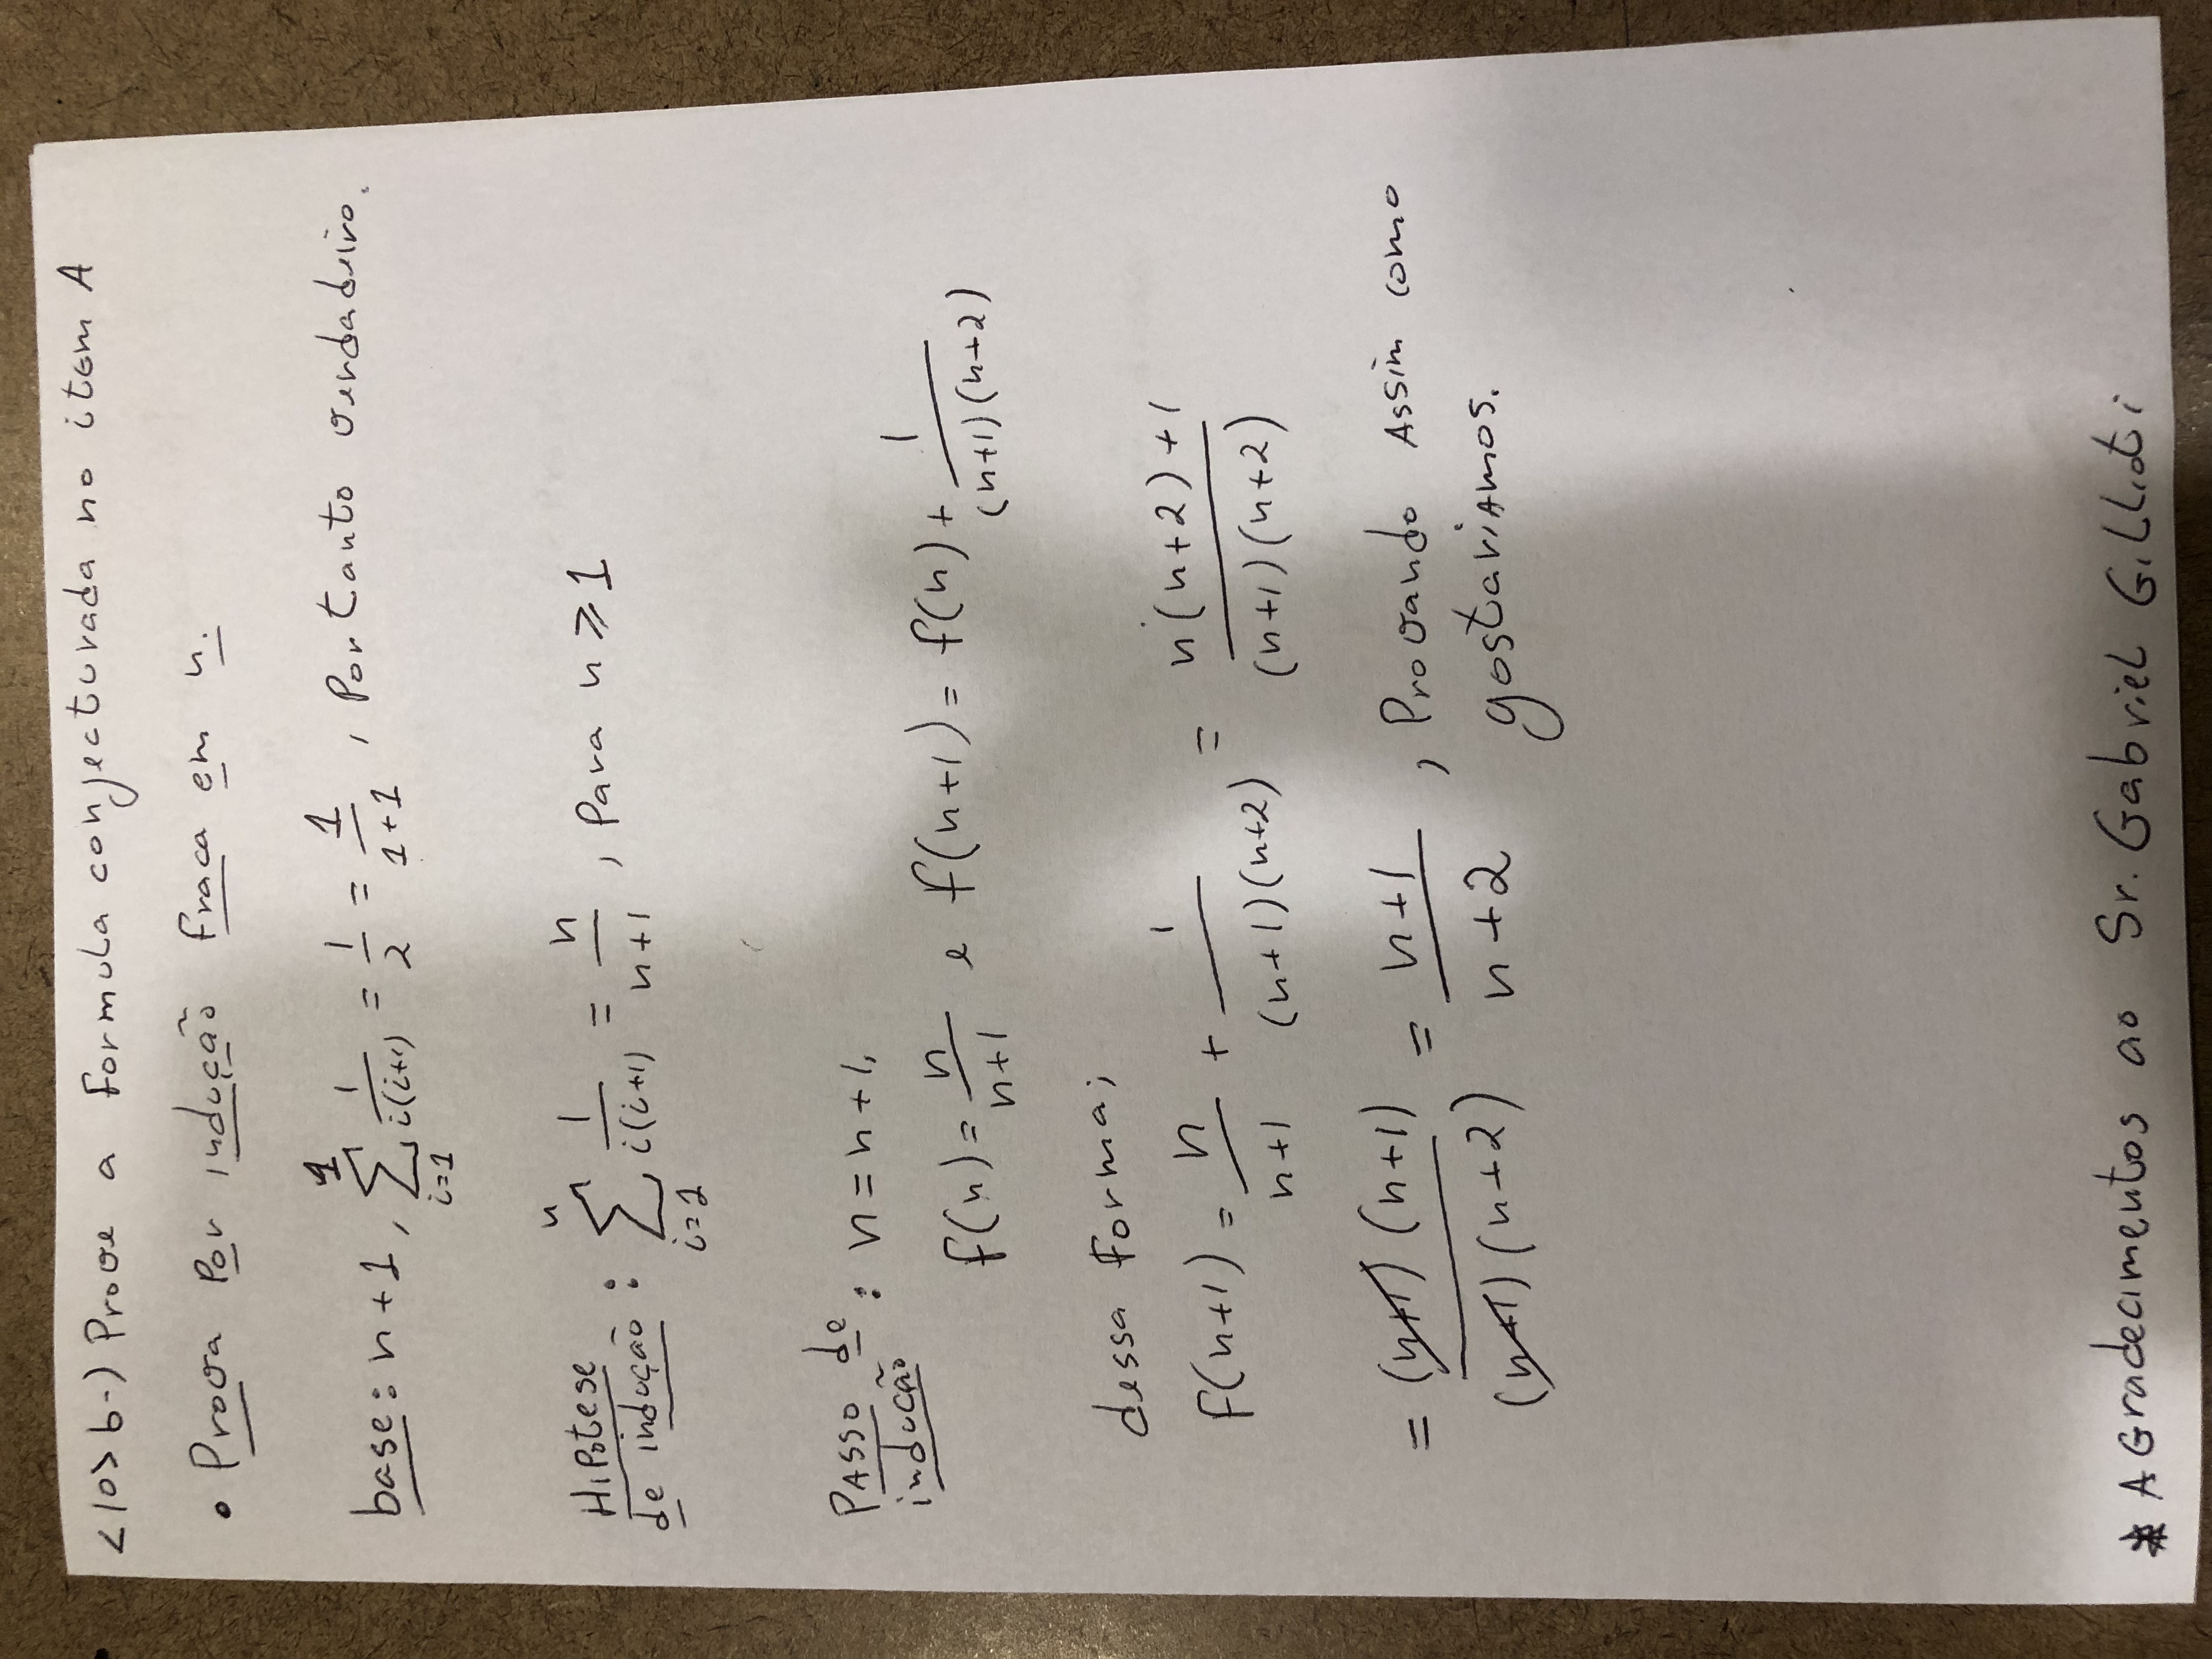 <10> b-) Prove a formula conjecturada no item A
• Prova por indução fraca em n.
base: n+1, ∑_{i=1}^{1} 1/(i(i+1)) = 1/2 = 1/(1+1), Portanto verdadeiro.
Hipotese de indução: ∑_{i=1}^{n} 1/(i(i+1)) = n/(n+1), para n ⩾ 1
Passo de indução: n=n+1,
f(n) = n/(n+1) e f(n+1) = f(n) + 1/((n+1)(n+2))
dessa forma;
f(n+1) = n/(n+1) + 1/((n+1)(n+2)) = (n(n+2)+1)/((n+1)(n+2))
= ((n+1)(n+1))/((n+1)(n+2)) = (n+1)/(n+2), Provando Assim como
gostariamos.
* Agradecimentos ao Sr. Gabriel Gillioti